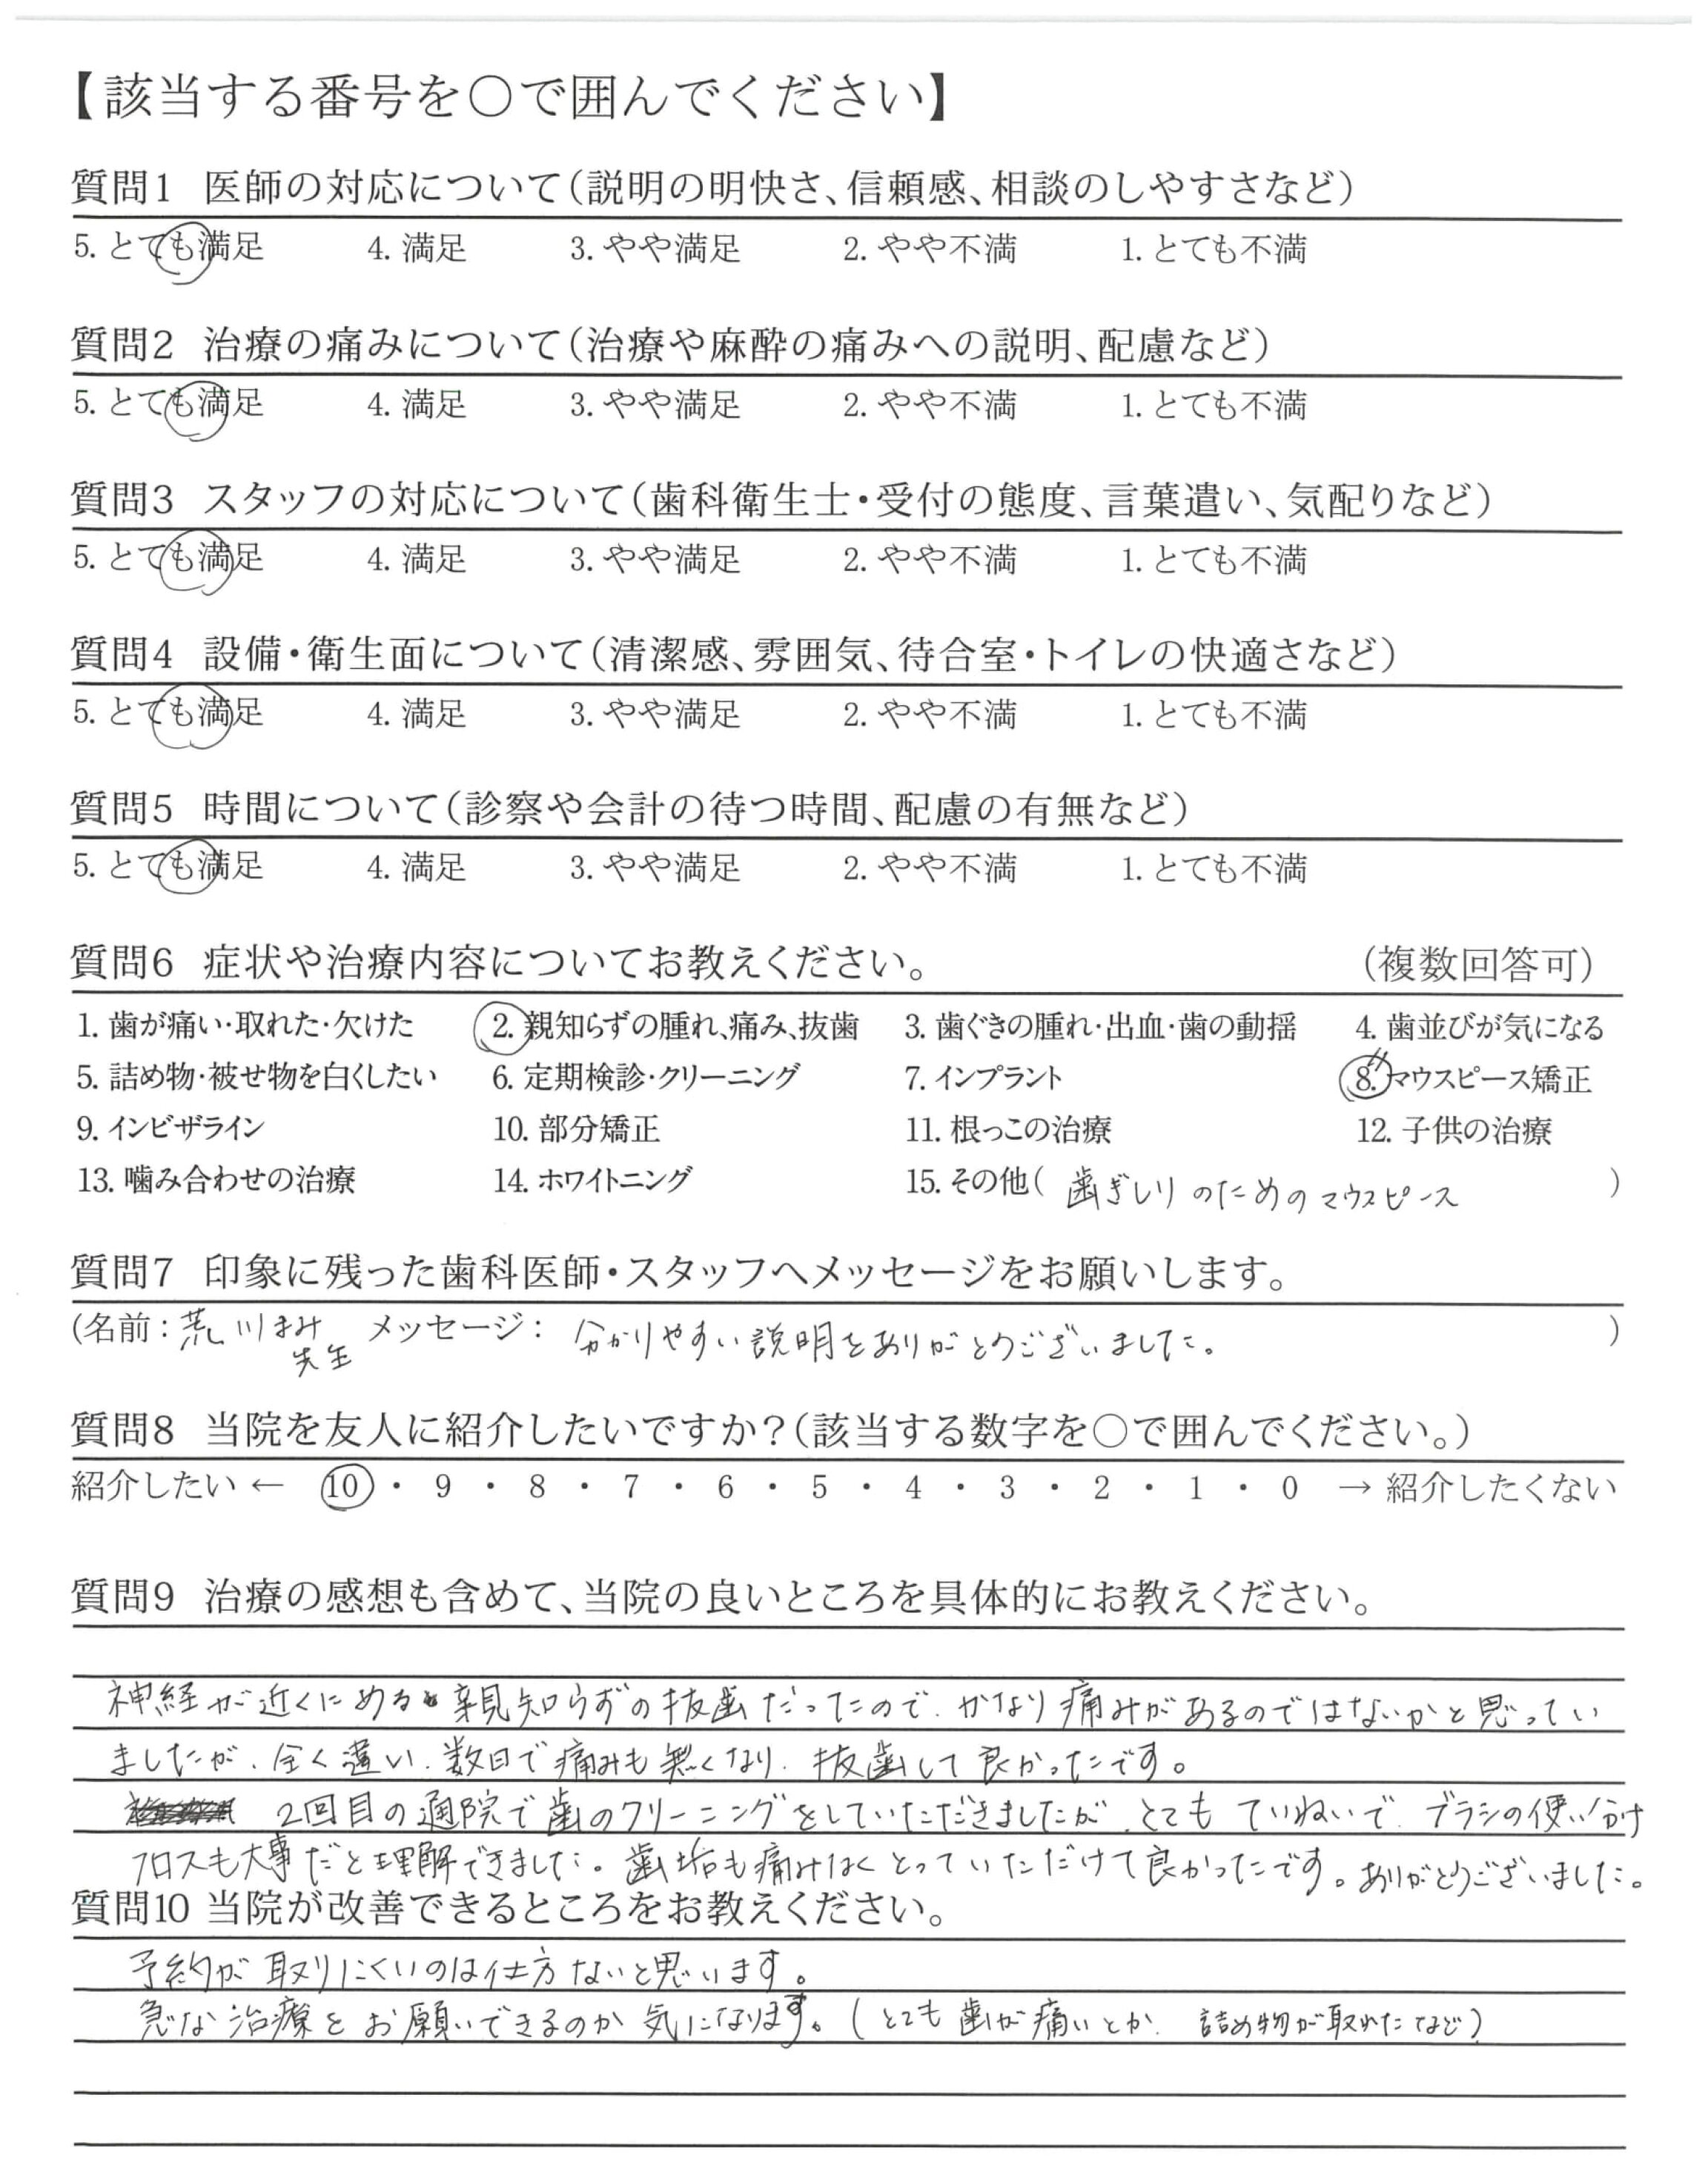 【該当する番号を○で囲んでください】
質問1 医師の対応について(説明の明快さ、信頼感、相談のしやすさなど)
5. とても満足 4. 満足 3. やや満足 2. やや不満 1. とても不満
質問2 治療の痛みについて(治療や麻酔の痛みへの説明、配慮など)
5. とても満足 4. 満足 3. やや満足 2. やや不満 1. とても不満
質問3 スタッフの対応について(歯科衛生士・受付の態度、言葉遣い、気配りなど)
5. とても満足 4. 満足 3. やや満足 2. やや不満 1. とても不満
質問4 設備・衛生面について(清潔感、雰囲気、待合室・トイレの快適さなど)
5. とても満足 4. 満足 3. やや満足 2. やや不満 1. とても不満
質問5 時間について(診察や会計の待つ時間、配慮の有無など)
5. とても満足 4. 満足 3. やや満足 2. やや不満 1. とても不満
質問6 症状や治療内容についてお教えください。 (複数回答可)
1. 歯が痛い・取れた・欠けた 2. 親知らずの腫れ、痛み、抜歯 3. 歯ぐきの腫れ・出血・歯の動揺 4. 歯並びが気になる
5. 詰め物・被せ物を白くしたい 6. 定期検診・クリーニング 7. インプラント 8. マウスピース矯正
9. インビザライン 10. 部分矯正 11. 根っこの治療 12. 子供の治療
13. 噛み合わせの治療 14. ホワイトニング 15. その他( 歯ぎしりのためのマウスピース )
質問7 印象に残った歯科医師・スタッフへメッセージをお願いします。
(名前: 荒川まみ先生 メッセージ: 分かりやすい説明をありがとうございました。 )
質問8 当院を友人に紹介したいですか?(該当する数字を○で囲んでください。)
紹介したい ← 10 ・ 9 ・ 8 ・ 7 ・ 6 ・ 5 ・ 4 ・ 3 ・ 2 ・ 1 ・ 0 → 紹介したくない
質問9 治療の感想も含めて、当院の良いところを具体的にお教えください。
神経が近くにある親知らずの抜歯だったので、かなり痛みがあるのではないかと思ってい
ましたが、全く違い、数日で痛みも無くなり、抜歯して良かったです。
2回目の通院で歯のクリーニングをしていただきましたが、とてもていねいで、ブラシの使い分け
フロスも大事だと理解できました。歯垢も痛みなくとっていただけて良かったです。ありがとうございました。
質問10 当院が改善できるところをお教えください。
予約が取りにくいのは仕方ないと思います。
急な治療をお願いできるのか気になります。(とても歯が痛いとか、詰め物が取れたなど)